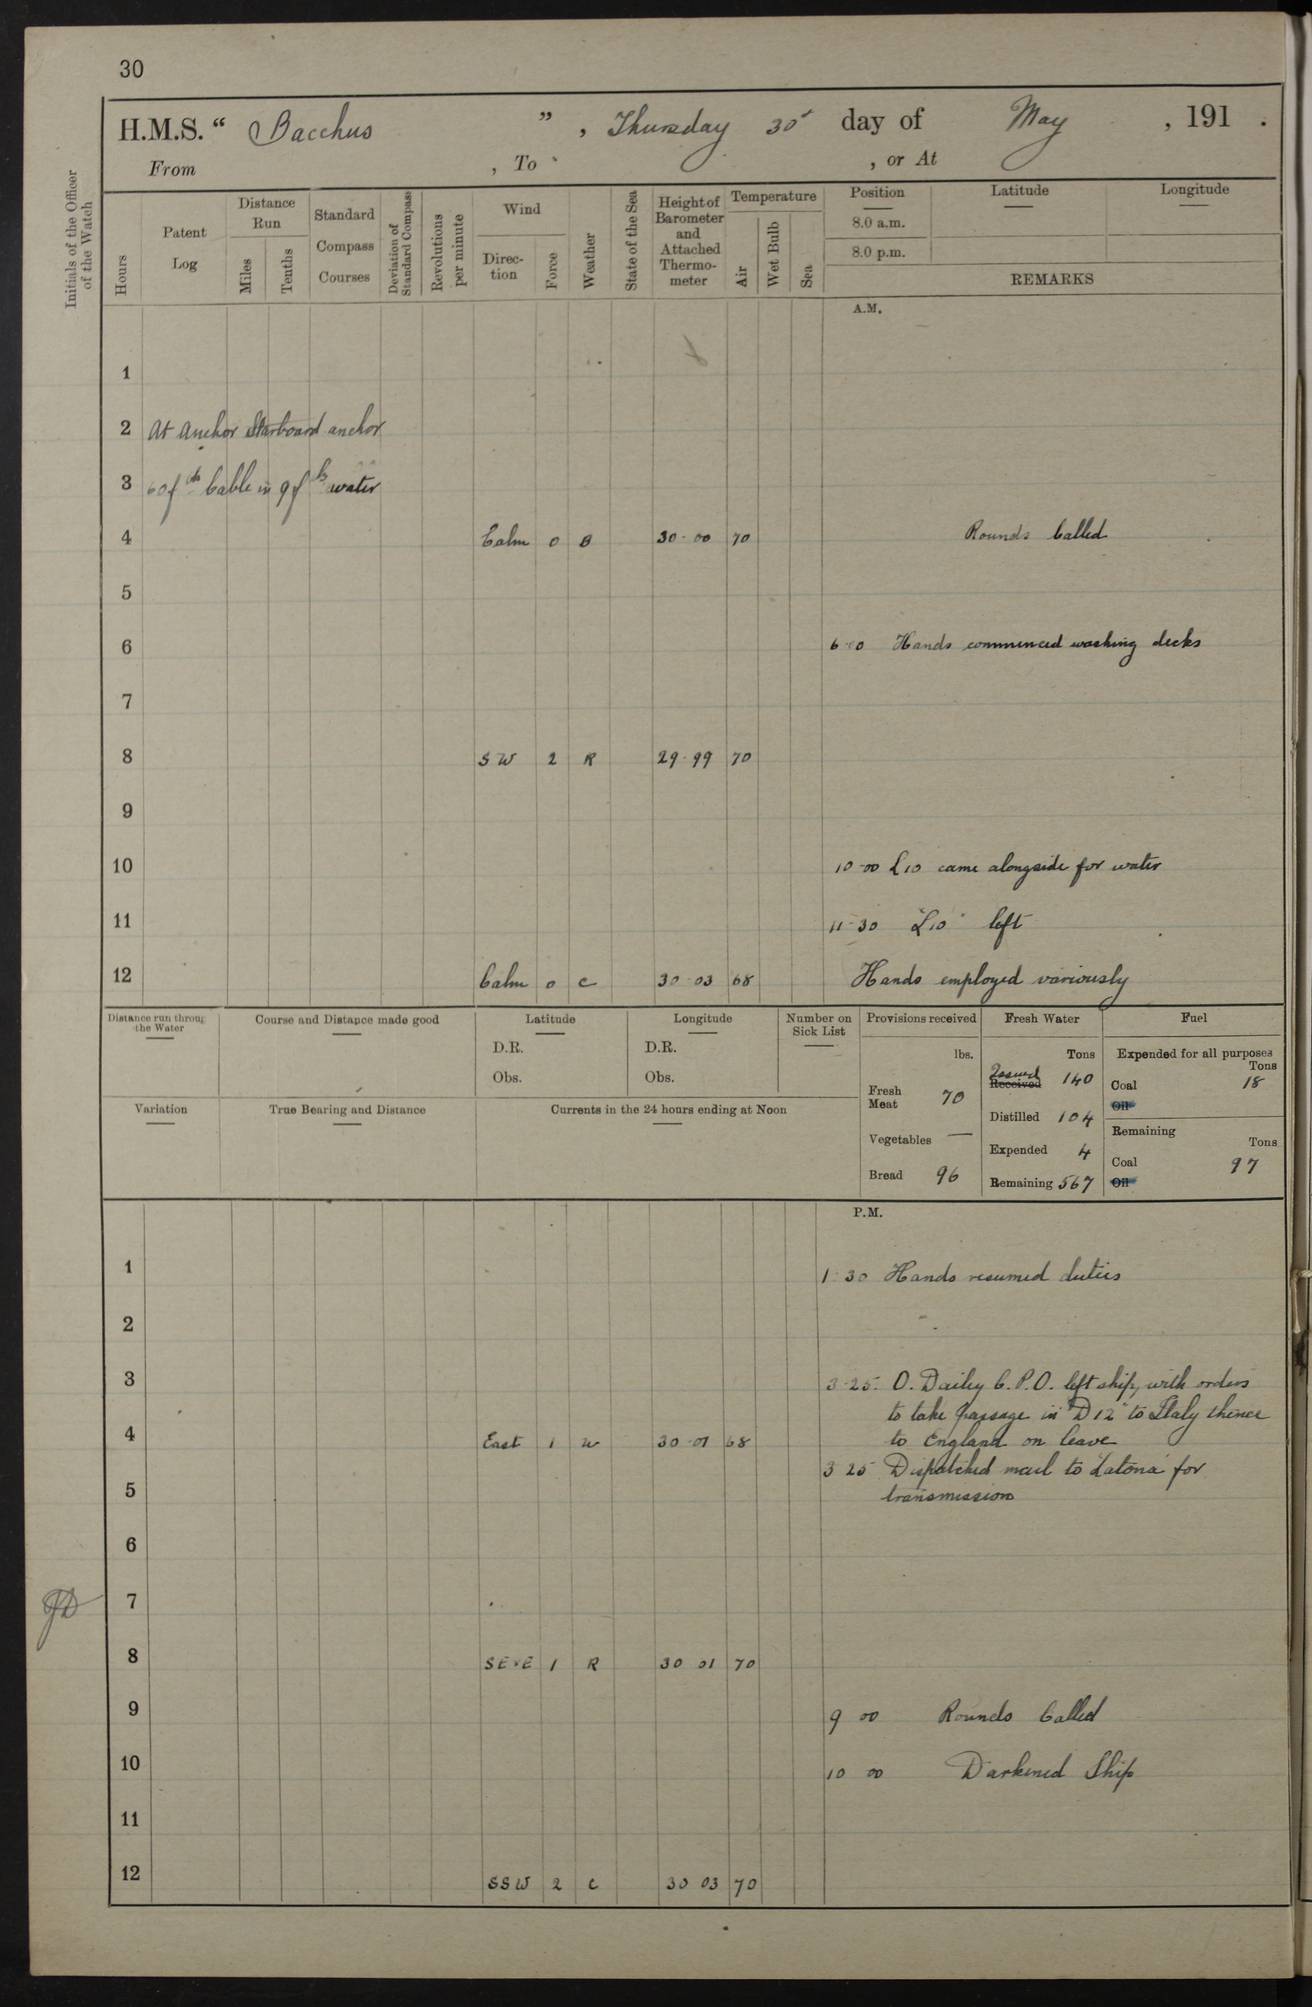 30
H.M.S. “ Bacchus ” , Thursday 30 day of May , 191 .
From , To , or At
Initials of the Officer of the Watch
Hours
Patent Log
Distance Run
Miles
Tenths
Standard Compass Courses
Deviation of Standard Compass
Revolutions per minute
Wind
Direction
Force
Weather
State of the Sea
Height of Barometer and Attached Thermometer
Temperature
Air
Wet Bulb
Sea
Position Latitude Longitude
8.0 a.m.
8.0 p.m.
REMARKS
A.M.
1
2 At Anchor Starboard anchor
3 60 fths Cable in 9 fths water
4 Calm 0 B 30·00 70 Rounds Called
5
6 6·00 Hands commenced washing decks
7
8 SW 2 R 29·99 70
9
10 10-00 L10 came alongside for water
11 11-30 "L10" left
12 Calm 0 C 30·03 68 Hands employed variously
Distance run throug the Water
Course and Distance made good
Latitude
D.R.
Obs.
Longitude
D.R.
Obs.
Number on Sick List
Variation
True Bearing and Distance
Currents in the 24 hours ending at Noon
Provisions received
lbs.
Fresh Meat 70
Vegetables —
Bread 96
Fresh Water
Tons
Issued
Received 140
Distilled 104
Expended 4
Remaining 567
Fuel
Expended for all purposes
Tons
Coal 18
Oil
Remaining
Tons
Coal 97
Oil
P.M.
1 1·30 Hands resumed duties
2
3 3·25 O. Dailey C.P.O. left ship, with orders
to take passage in "D12" to Italy thence
4 East 1 W 30·01 68 to England on leave
3 25 Dispatched mail to Latona for
5 transmission
6
7
8 SE×E 1 R 30 01 70
9 9 00 Rounds Called
10 10 00 Darkened Ship
11
12 SSW 2 C 30 03 70